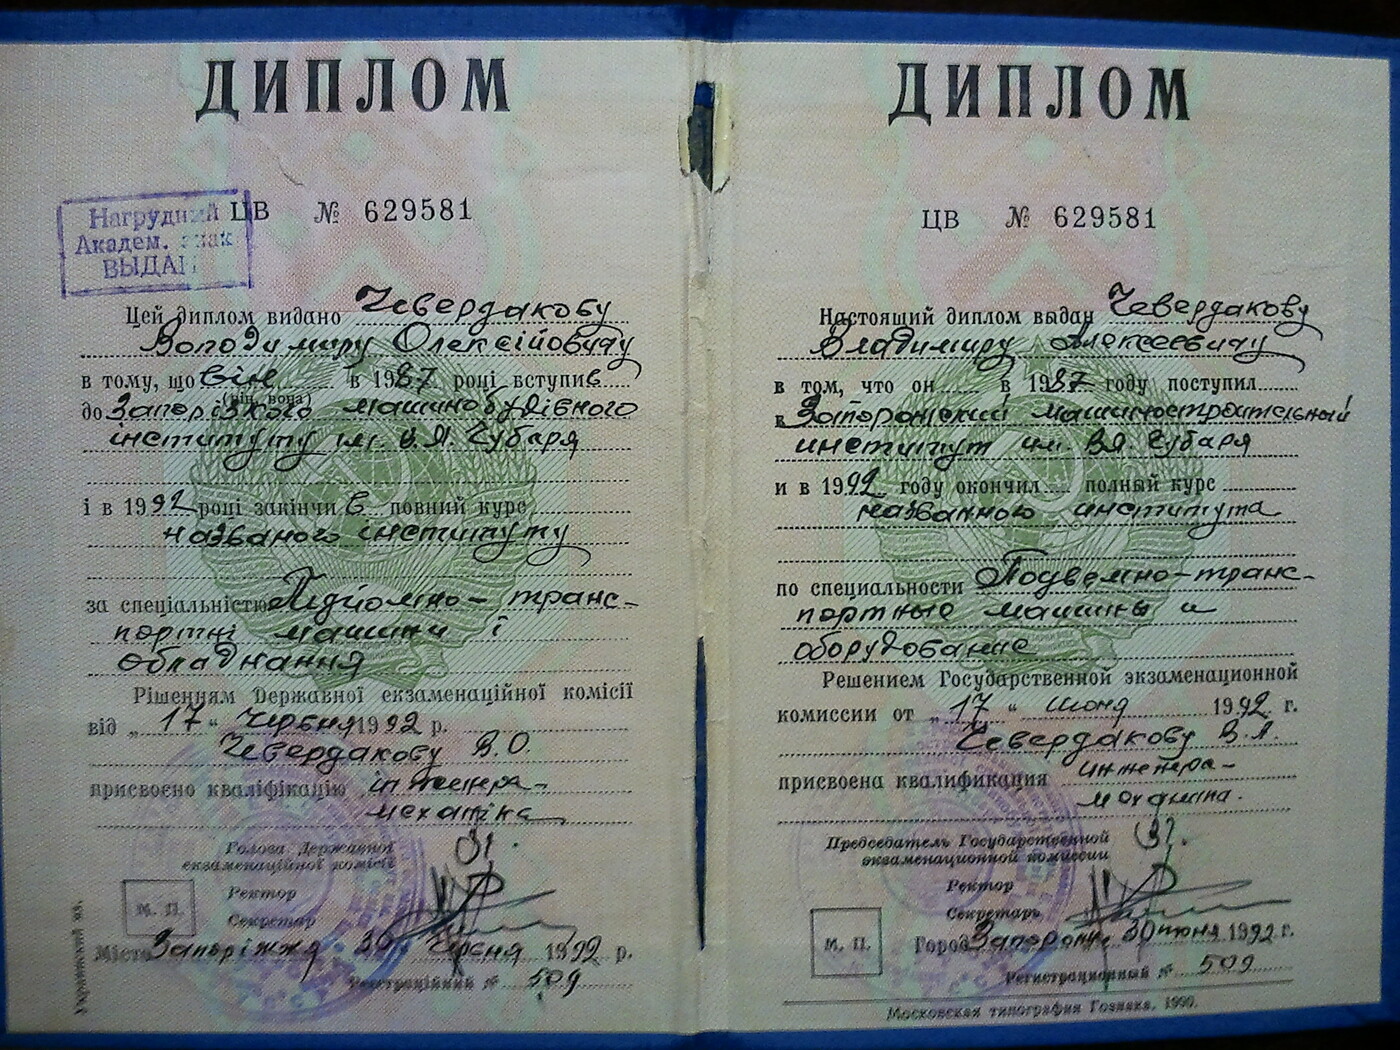 ДИПЛОМ
ЦВ № 629581
Нагрудний
Академ. знак
ВЫДАН
Цей диплом видано Чевердакову
Володимиру Олексійовичу
в тому, що він в 1987 році вступив
(він, вона)
до Запорізького машинобудівного
інституту ім. В.Я. Чубаря
і в 1992 році закінчив повний курс
названого інституту
за спеціальністю Підйомно-транс-
портні машини і
обладнання
Рішенням Державної екзаменаційної комісії
від „17“ червня 1992 р.
Чевердакову В.О.
присвоєно кваліфікацію інженера-
механіка
Голова Державної
екзаменаційної комісії
Ректор
М. П.
Секретар
Місто Запоріжжя 30 червня 1992 р.
Реєстраційний № 509
Украинский яз.
ДИПЛОМ
ЦВ № 629581
Настоящий диплом выдан Чевердакову
Владимиру Алексеевичу
в том, что он в 1987 году поступил
в Запорожский машиностроительный
институт им. В.Я. Чубаря
и в 1992 году окончил полный курс
названного института
по специальности Подъемно-транс-
портные машины и
оборудование
Решением Государственной экзаменационной
комиссии от „17“ июня 1992 г.
Чевердакову В.А.
присвоена квалификация инженера-
механика.
Председатель Государственной
экзаменационной комиссии
Ректор
Секретарь
М. П.
Город Запорожье 30 июня 1992 г.
Регистрационный № 509
Московская типография Гознака. 1990.